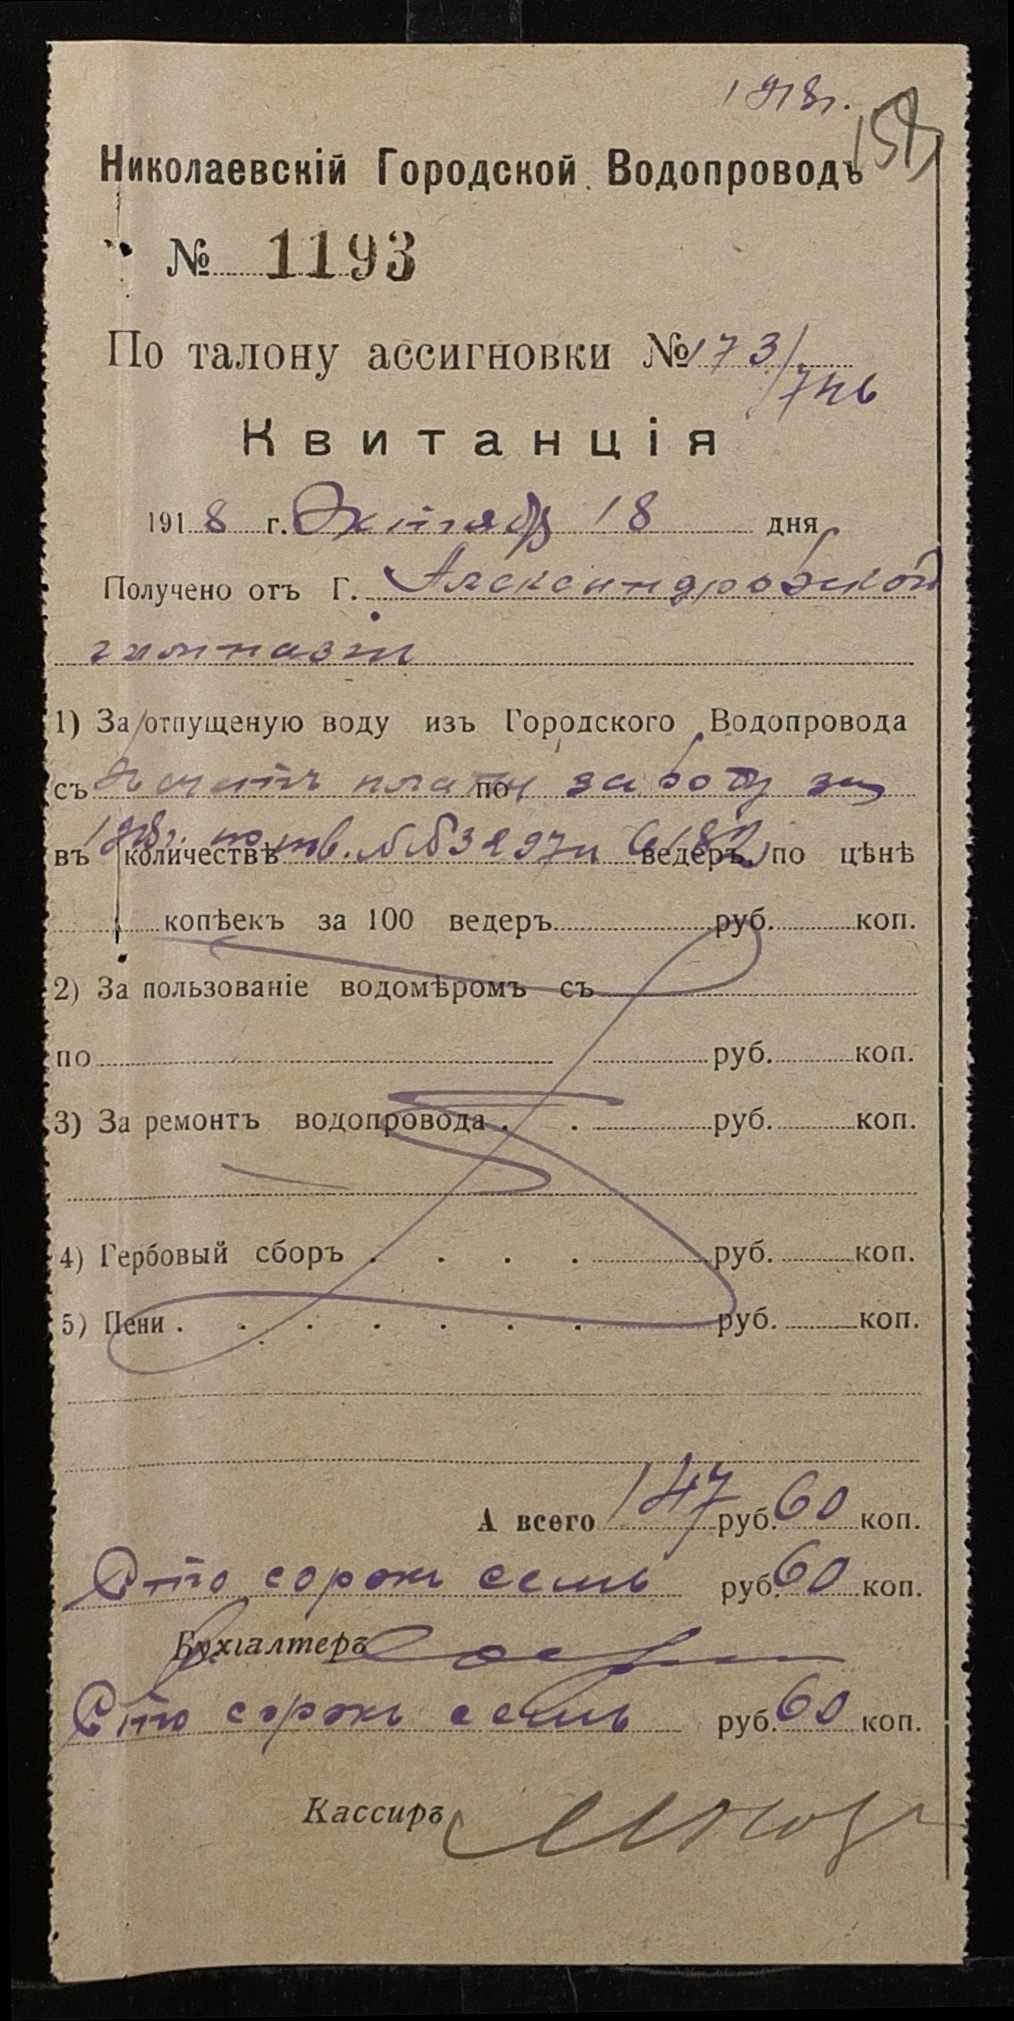 1918г.
Николаевскій Городской Водопроводъ
№ 1193
По талону ассигновки № 173/746
Квитанція
1918 г. Октября 18 дня
Получено отъ Г. Александровской
гимназіи
1) За отпущеную воду изъ Городского Водопровода
съ въ счетъ платы по за воду за
въ 1918г. количествѣ по тв. №№3297 и 6182 ведеръ по цѣнѣ
копѣекъ за 100 ведеръ руб. коп.
2) За пользованіе водомѣромъ съ
по руб. коп.
3) За ремонтъ водопровода . . руб. коп.
4) Гербовый сборъ . . . . руб. коп.
5) Пени . . . . . . . руб. коп.
А всего 147 руб. 60 коп.
Сто сорокъ семь руб. 60 коп.
Бухгалтеръ
Сто сорокъ семь руб. 60 коп.
Кассиръ